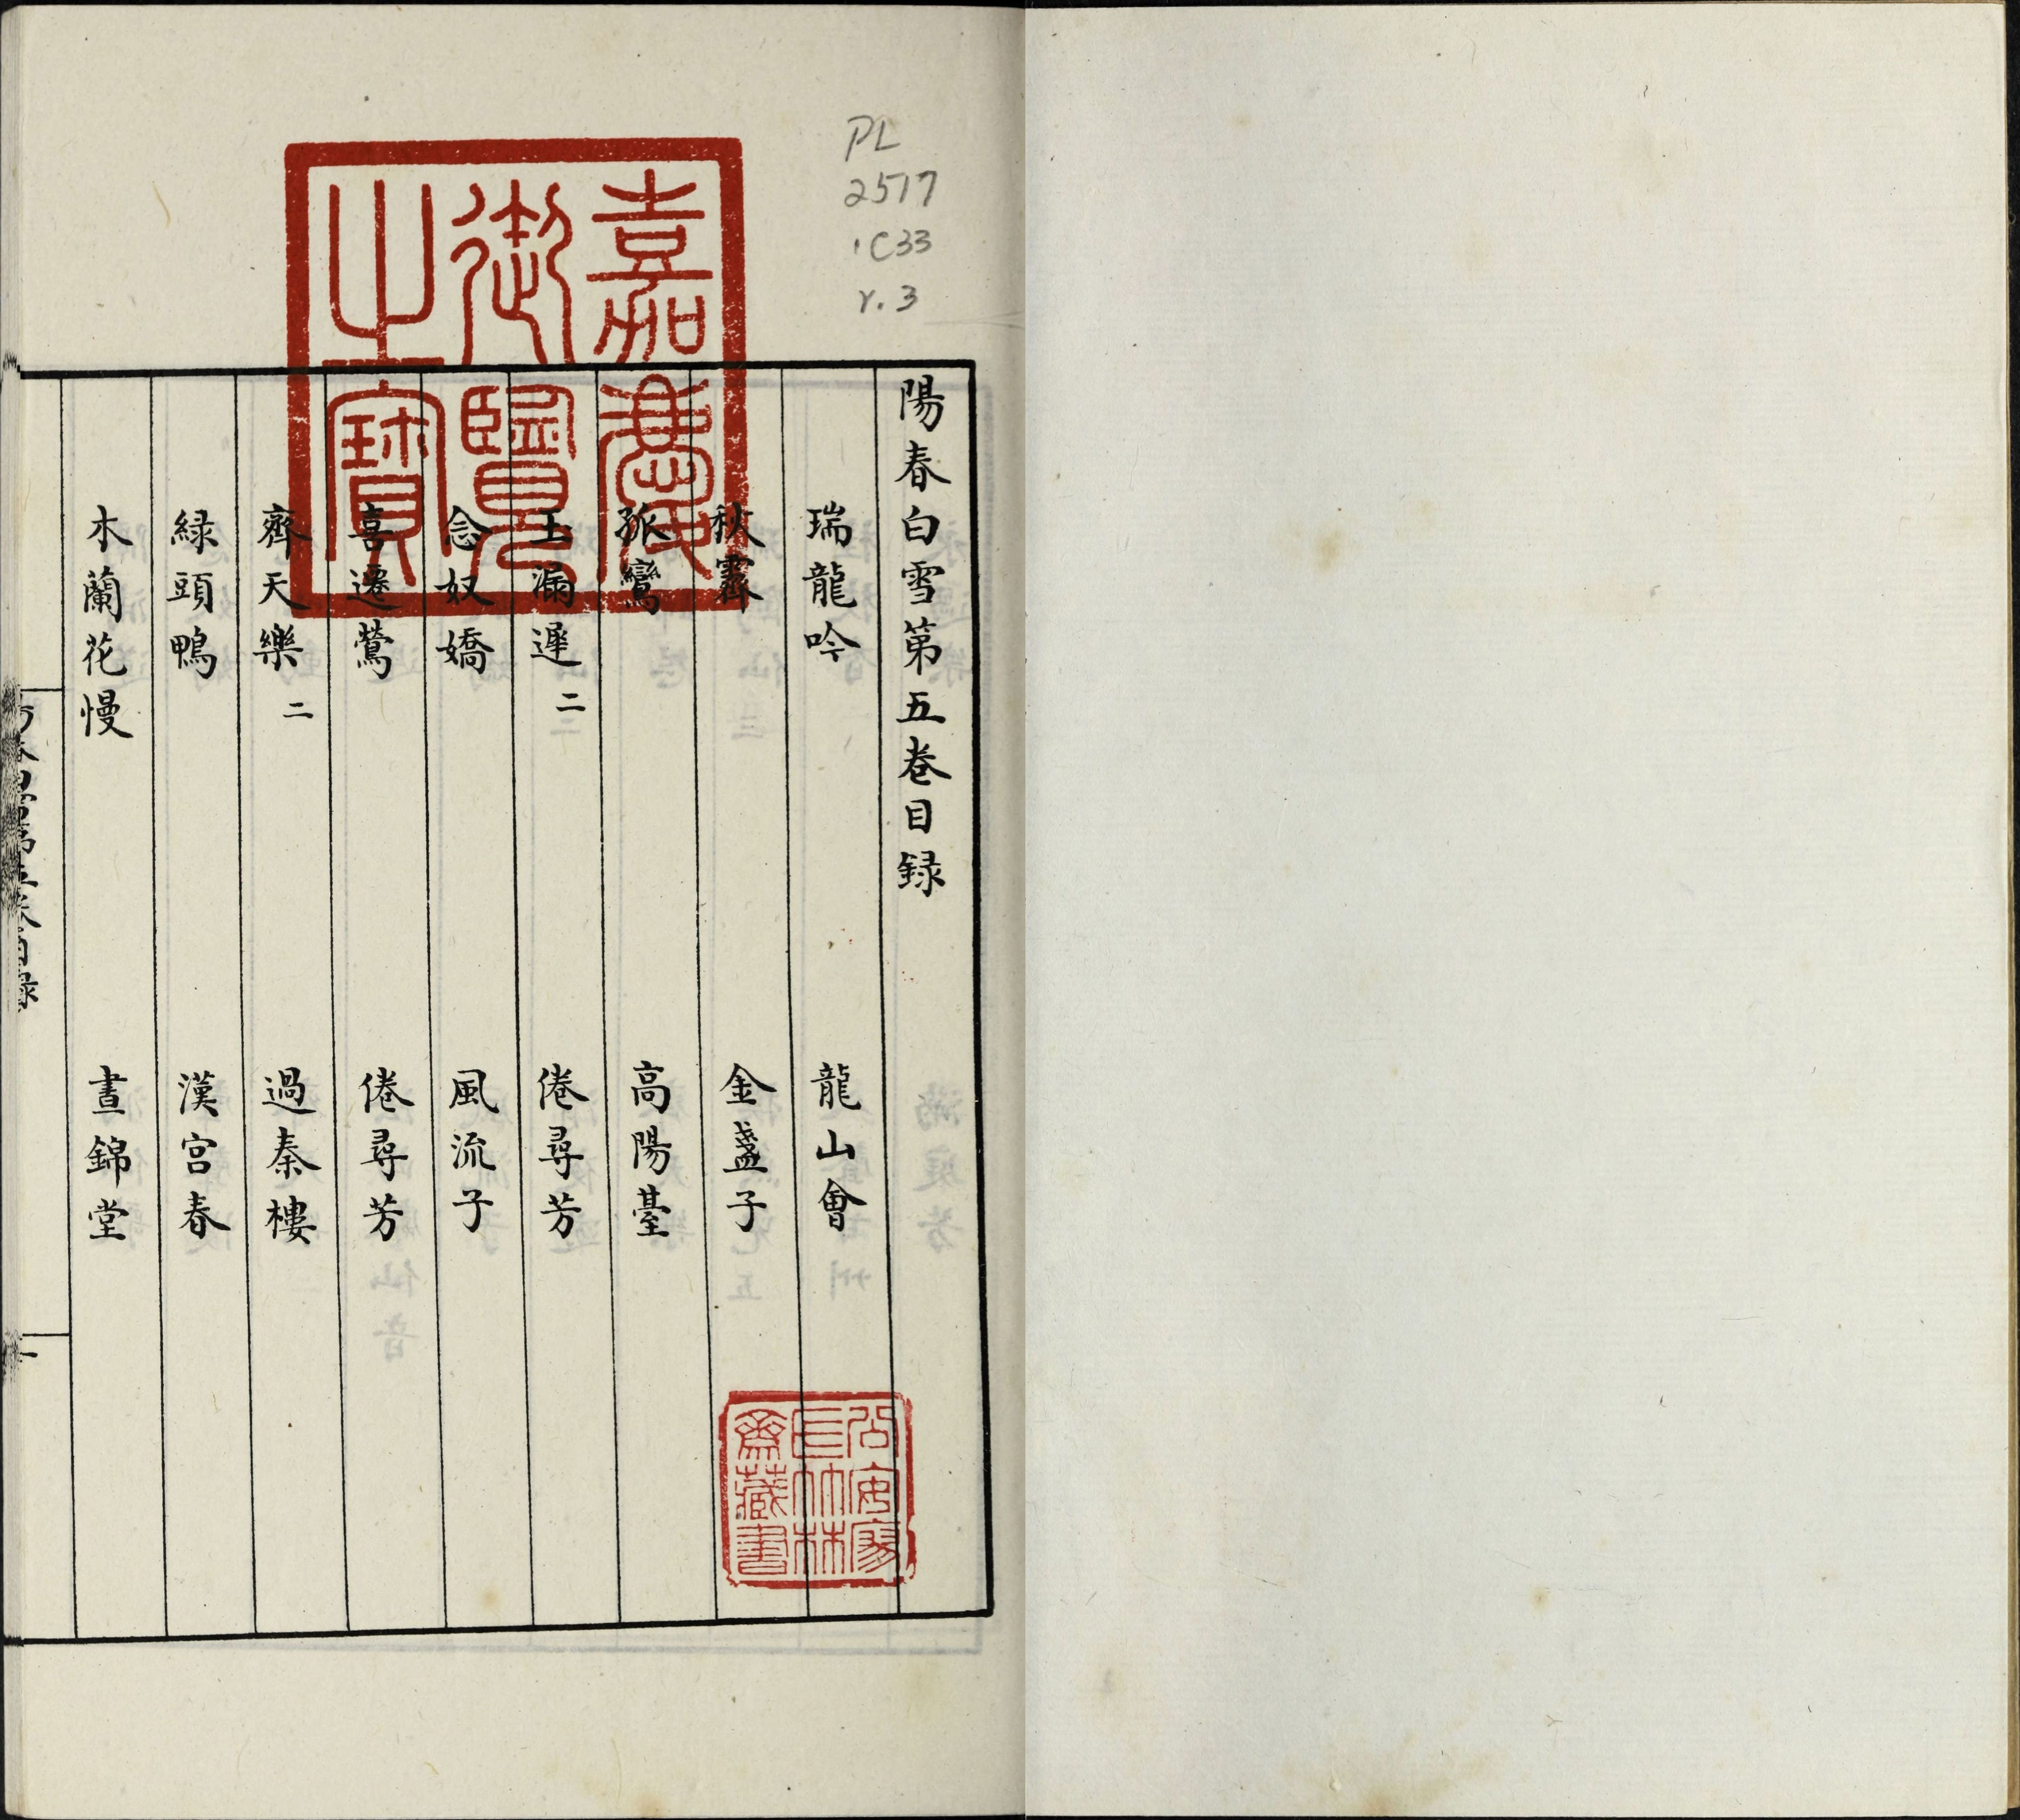 PL
2517
.C33
v.3
嘉慶
御覽
之寶
陽春白雪第五卷目録
瑞龍吟 龍山會
秋霽 金盞子
孤鸞 高陽臺
玉漏遲二 倦尋芳
念奴嬌 風流子
喜遷鶯 倦尋芳
齊天樂二 過秦樓
緑頭鴨 漢宮春
木蘭花慢 晝錦堂
公安家
巨竹林
齋藏書
春白雪第五卷目録
一